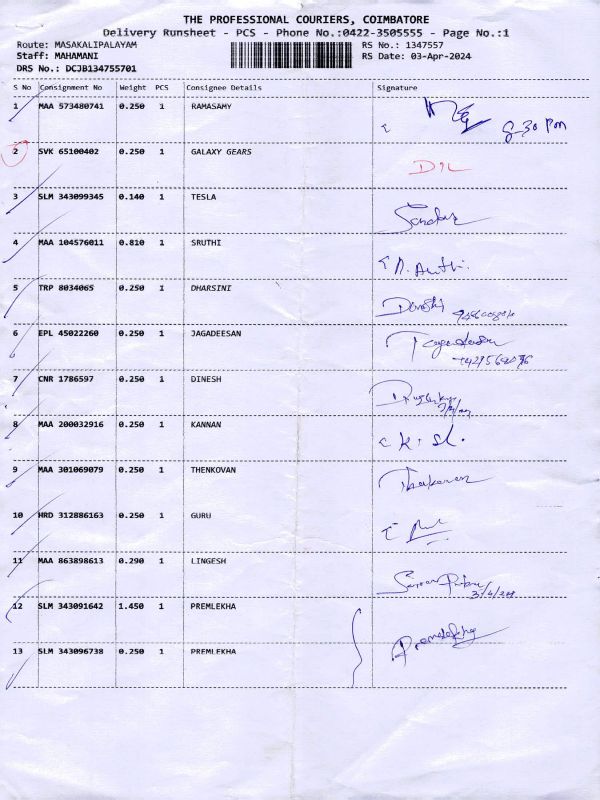 THE PROFESSIONAL COURIERS, COIMBATORE
Delivery Runsheet - PCS - Phone No.:0422-3505555 - Page No.:1
Route: MASAKALIPALAYAM RS No.: 1347557
Staff: MAHAMANI RS Date: 03-Apr-2024
DRS No.: DCJB134755701
S No Consignment No Weight PCS Consignee Details Signature
1 MAA 573480741 0.250 1 RAMASAMY
8-30 Pm
2 SVK 65100402 0.250 1 GALAXY GEARS
3 SLM 343099345 0.140 1 TESLA
4 MAA 104576011 0.810 1 SRUTHI
5 TRP 8034065 0.250 1 DHARSINI
6 EPL 45022260 0.250 1 JAGADEESAN
7 CNR 1786597 0.250 1 DINESH
8 MAA 200032916 0.250 1 KANNAN
9 MAA 301069079 0.250 1 THENKOVAN
10 HRD 312886163 0.250 1 GURU
11 MAA 863898613 0.290 1 LINGESH
3/4/24
12 SLM 343091642 1.450 1 PREMLEKHA
Premlekha
13 SLM 343096738 0.250 1 PREMLEKHA